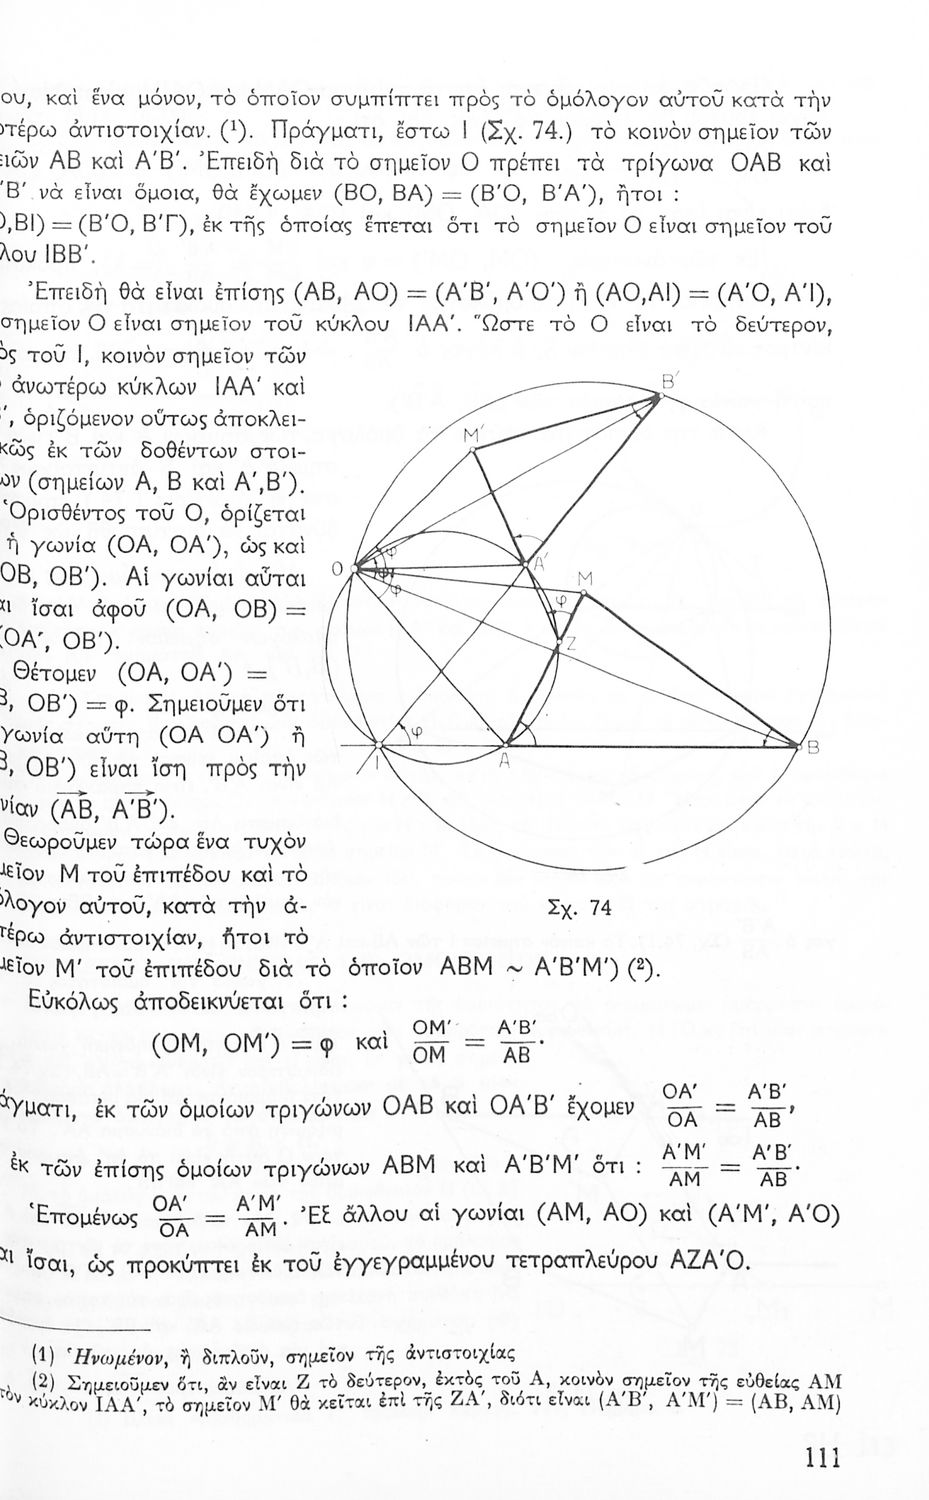 ου, καὶ ἕνα μόνον, τὸ ὁποῖον συμπίπτει πρὸς τὸ ὁμόλογον αὐτοῦ κατὰ τὴν
τέρω ἀντιστοιχίαν. (¹). Πράγματι, ἔστω Ι (Σχ. 74.) τὸ κοινὸν σημεῖον τῶν
ειῶν ΑΒ καὶ Α'Β'. Ἐπειδὴ διὰ τὸ σημεῖον Ο πρέπει τὰ τρίγωνα ΟΑΒ καὶ
'Β' νὰ εἶναι ὅμοια, θὰ ἔχωμεν (ΒΟ, ΒΑ) = (Β'Ο, Β'Α'), ἤτοι :
,ΒΙ) = (Β'Ο, Β'Γ), ἐκ τῆς ὁποίας ἕπεται ὅτι τὸ σημεῖον Ο εἶναι σημεῖον τοῦ
λου ΙΒΒ'.
Ἐπειδὴ θὰ εἶναι ἐπίσης (ΑΒ, ΑΟ) = (Α'Β', Α'Ο') ἢ (ΑΟ,ΑΙ) = (Α'Ο, Α'Ι),
σημεῖον Ο εἶναι σημεῖον τοῦ κύκλου ΙΑΑ'. Ὥστε τὸ Ο εἶναι τὸ δεύτερον,
ὸς τοῦ Ι, κοινὸν σημεῖον τῶν
ἀνωτέρω κύκλων ΙΑΑ' καὶ
', ὁριζόμενον οὕτως ἀποκλει-
κῶς ἐκ τῶν δοθέντων στοι-
ων (σημείων Α, Β καὶ Α',Β').
Ὁρισθέντος τοῦ Ο, ὁρίζεται
ἡ γωνία (ΟΑ, ΟΑ'), ὡς καὶ
ΟΒ, ΟΒ'). Αἱ γωνίαι αὗται
αι ἴσαι ἀφοῦ (ΟΑ, ΟΒ) =
(ΟΑ', ΟΒ').
Θέτομεν (ΟΑ, ΟΑ') =
Β, ΟΒ') = φ. Σημειοῦμεν ὅτι
γωνία αὕτη (ΟΑ ΟΑ') ἢ
Β, ΟΒ') εἶναι ἴση πρὸς τὴν
νίαν (ΑΒ, Α'Β').
Θεωροῦμεν τώρα ἕνα τυχὸν
μεῖον Μ τοῦ ἐπιπέδου καὶ τὸ
όλογον αὐτοῦ, κατὰ τὴν ἀ-
τέρω ἀντιστοιχίαν, ἤτοι τὸ
μεῖον Μ' τοῦ ἐπιπέδου διὰ τὸ ὁποῖον ΑΒΜ ~ Α'Β'Μ') (²).
Β'
Μ'
Ο
φ
φ
φ
Α'
Μ
φ
Ζ
φ
Ι
Α
Β
Σχ. 74
Εὐκόλως ἀποδεικνύεται ὅτι :
(ΟΜ, ΟΜ') = φ καὶ ΟΜ'/ΟΜ = Α'Β'/ΑΒ.
άγματι, ἐκ τῶν ὁμοίων τριγώνων ΟΑΒ καὶ ΟΑ'Β' ἔχομεν ΟΑ'/ΟΑ = Α'Β'/ΑΒ,
ἐκ τῶν ἐπίσης ὁμοίων τριγώνων ΑΒΜ καὶ Α'Β'Μ' ὅτι : Α'Μ'/ΑΜ = Α'Β'/ΑΒ.
Ἑπομένως ΟΑ'/ΟΑ = Α'Μ'/ΑΜ. Ἐξ ἄλλου αἱ γωνίαι (ΑΜ, ΑΟ) καὶ (Α'Μ', Α'Ο)
αι ἴσαι, ὡς προκύπτει ἐκ τοῦ ἐγγεγραμμένου τετραπλεύρου ΑΖΑ'Ο.
(1) Ἡνωμένον, ἢ διπλοῦν, σημεῖον τῆς ἀντιστοιχίας
(2) Σημειοῦμεν ὅτι, ἂν εἶναι Ζ τὸ δεύτερον, ἐκτὸς τοῦ Α, κοινὸν σημεῖον τῆς εὐθείας ΑΜ
τὸν κύκλον ΙΑΑ', τὸ σημεῖον Μ' θὰ κεῖται ἐπὶ τῆς ΖΑ', διότι εἶναι (Α'Β', Α'Μ') = (ΑΒ, ΑΜ)
111